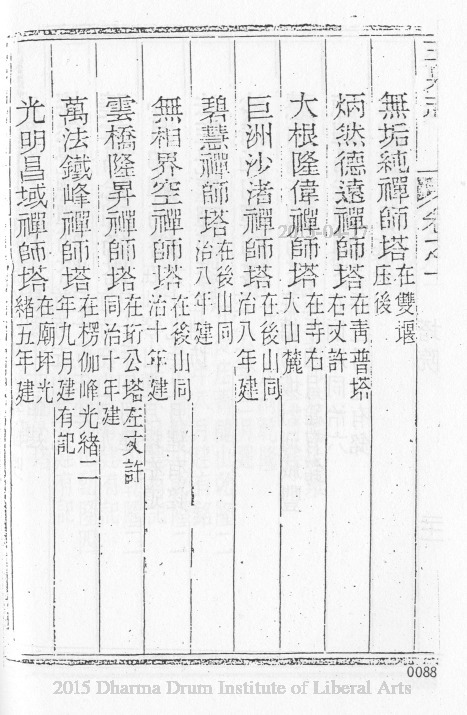 無垢純禪師塔在雙堰压後
炳然德遠禪師塔在青普塔右丈許
大根隆偉禪師塔在寺右大山麓
巨洲沙渚禪師塔在後山同治八年建
碧慧禪師塔在後山同治八年建
無相界空禪師塔在後山同治十年建
雲橋隆昇禪師塔在珩公塔左丈許同治十年建
萬法鐵峰禪師塔在楞伽峰光緒二年九月建有記
光明昌域禪師塔在廟坪光緒五年建
0088
2015 Dharma Drum Institute of Liberal Arts